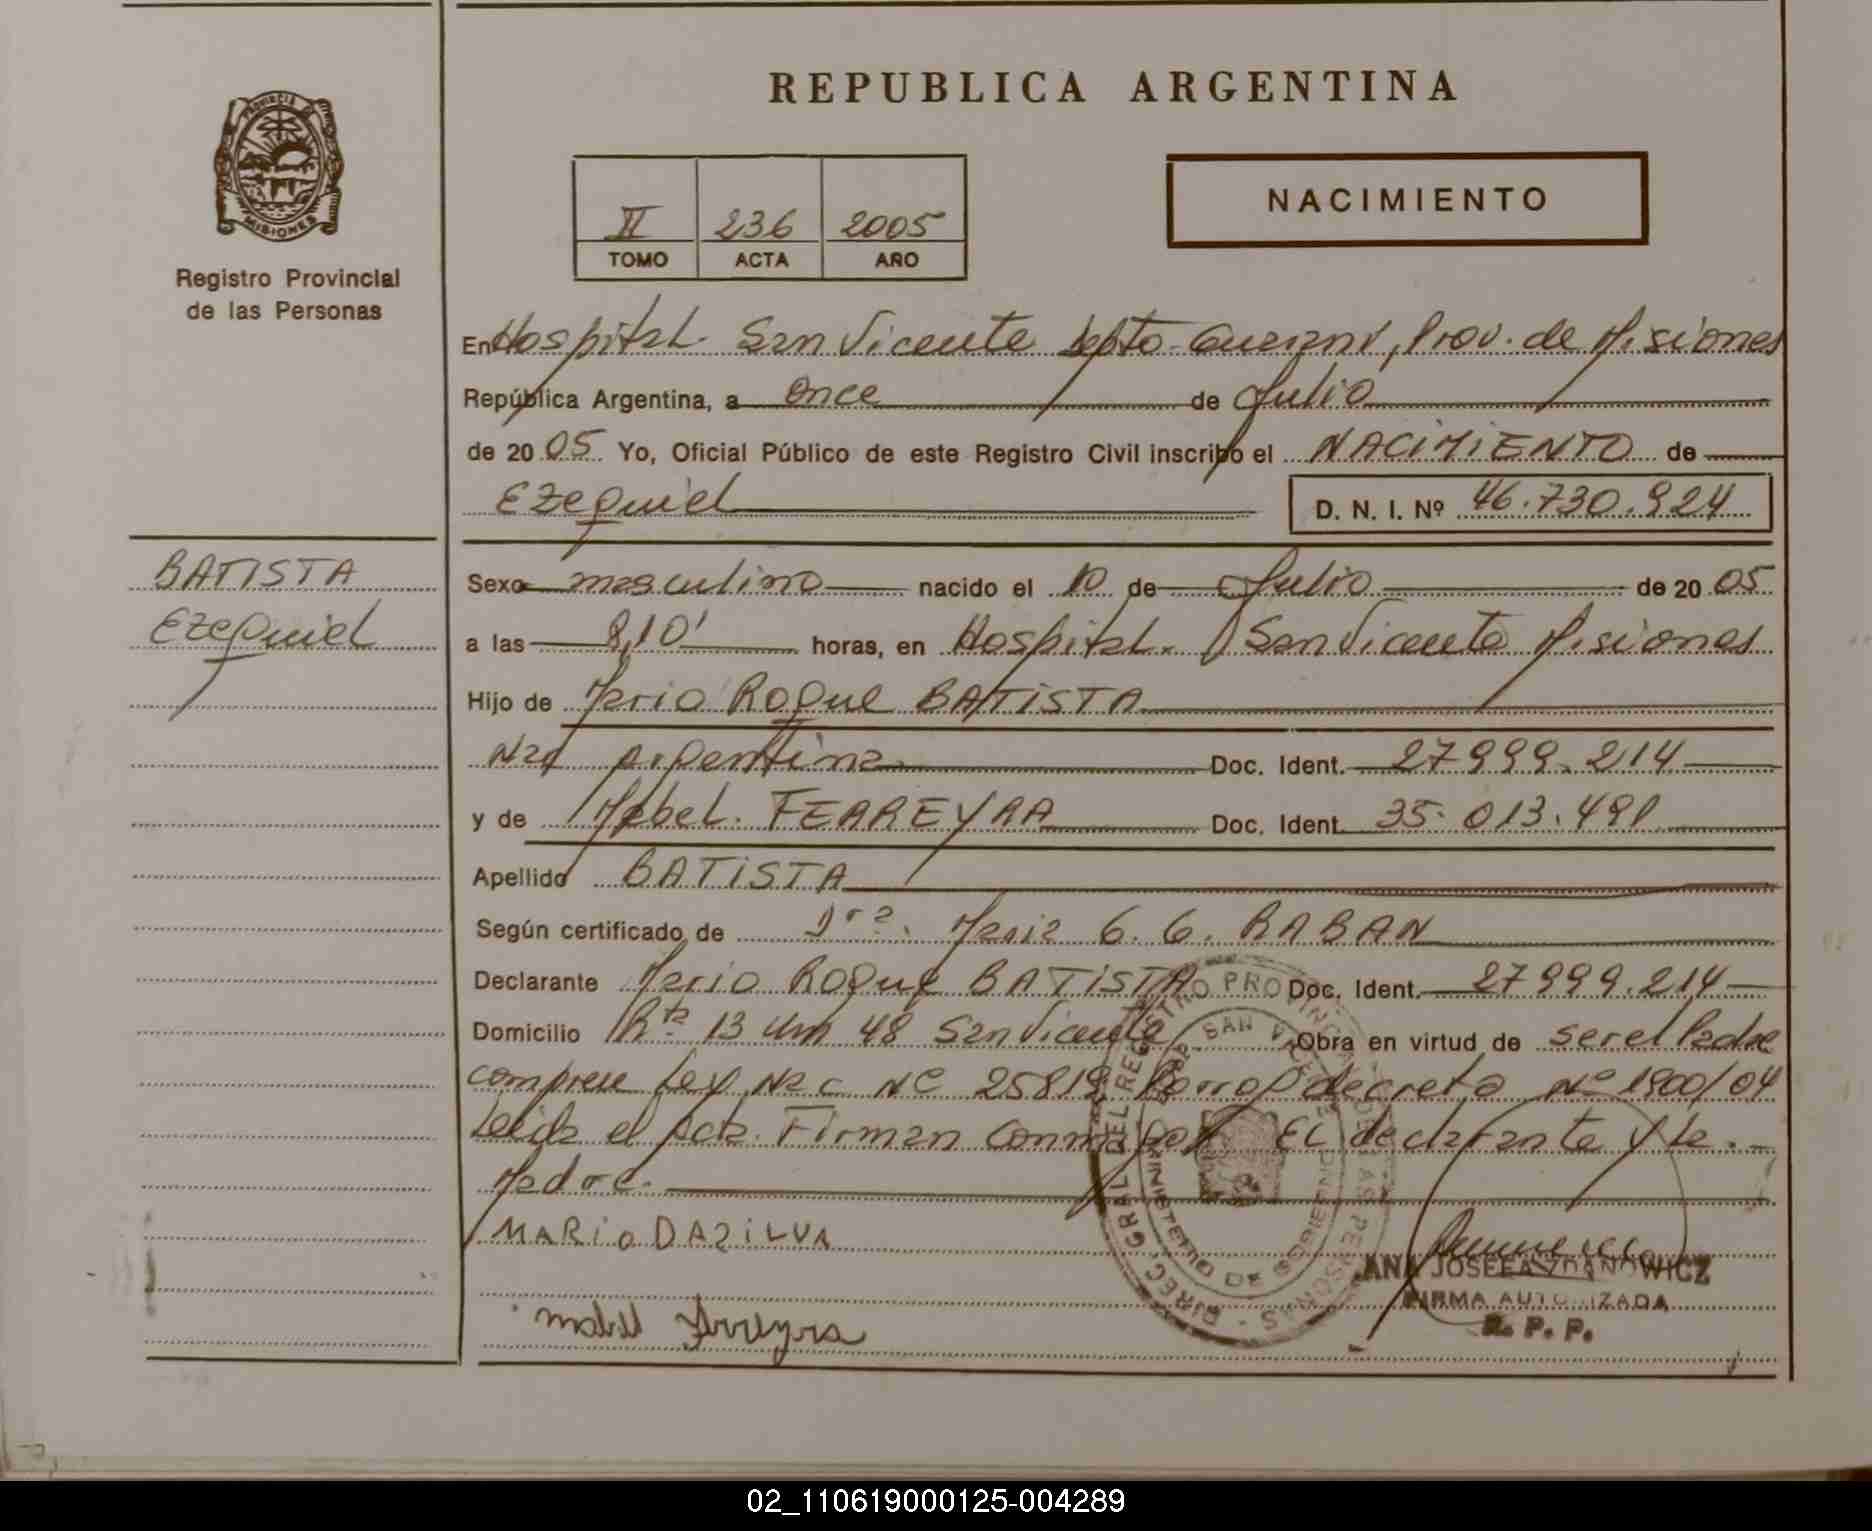 REPUBLICA ARGENTINA
PROVINCIA DE MISIONES
Registro Provincial
de las Personas
II 236 2005
TOMO ACTA AÑO
NACIMIENTO
En Hospital San Vicente Depto Guaraní, Prov. de Misiones
República Argentina, a once de Julio
de 2005 Yo, Oficial Público de este Registro Civil inscribo el NACIMIENTO de
Ezequiel D. N. I. Nº 46.730.924
BATISTA
Ezequiel
Sexo masculino nacido el 10 de Julio de 2005
a las 8,10' horas, en Hospital. San Vicente Misiones
Hijo de Mario Roque BATISTA
Nac Argentina Doc. Ident. 27999.214
y de Mabel. FERREYRA Doc. Ident. 35.013.491
Apellido BATISTA
Según certificado de Dra. Maria G. G. RABAN
Declarante Mario Roque BATISTA Doc. Ident. 27999.214
Domicilio Rta 13 Km 48 San Vicente Obra en virtud de ser el Padre
Ley Nac Nº 25819 decreto Nº 1900/04
Leida el Acta. Firman Conmigo El declarante y La
Madre.
MARiO DASiLVA
mabel ferreyra
DIREC. GRAL DEL REGISTRO PROVINCIAL DE LAS PERSONAS
MINISTERIO DE GOBIERNO
SAN VICENTE
ANA JOSEFA ZDANOWICZ
FIRMA AUTORIZADA
R. P. P.
02_110619000125-004289